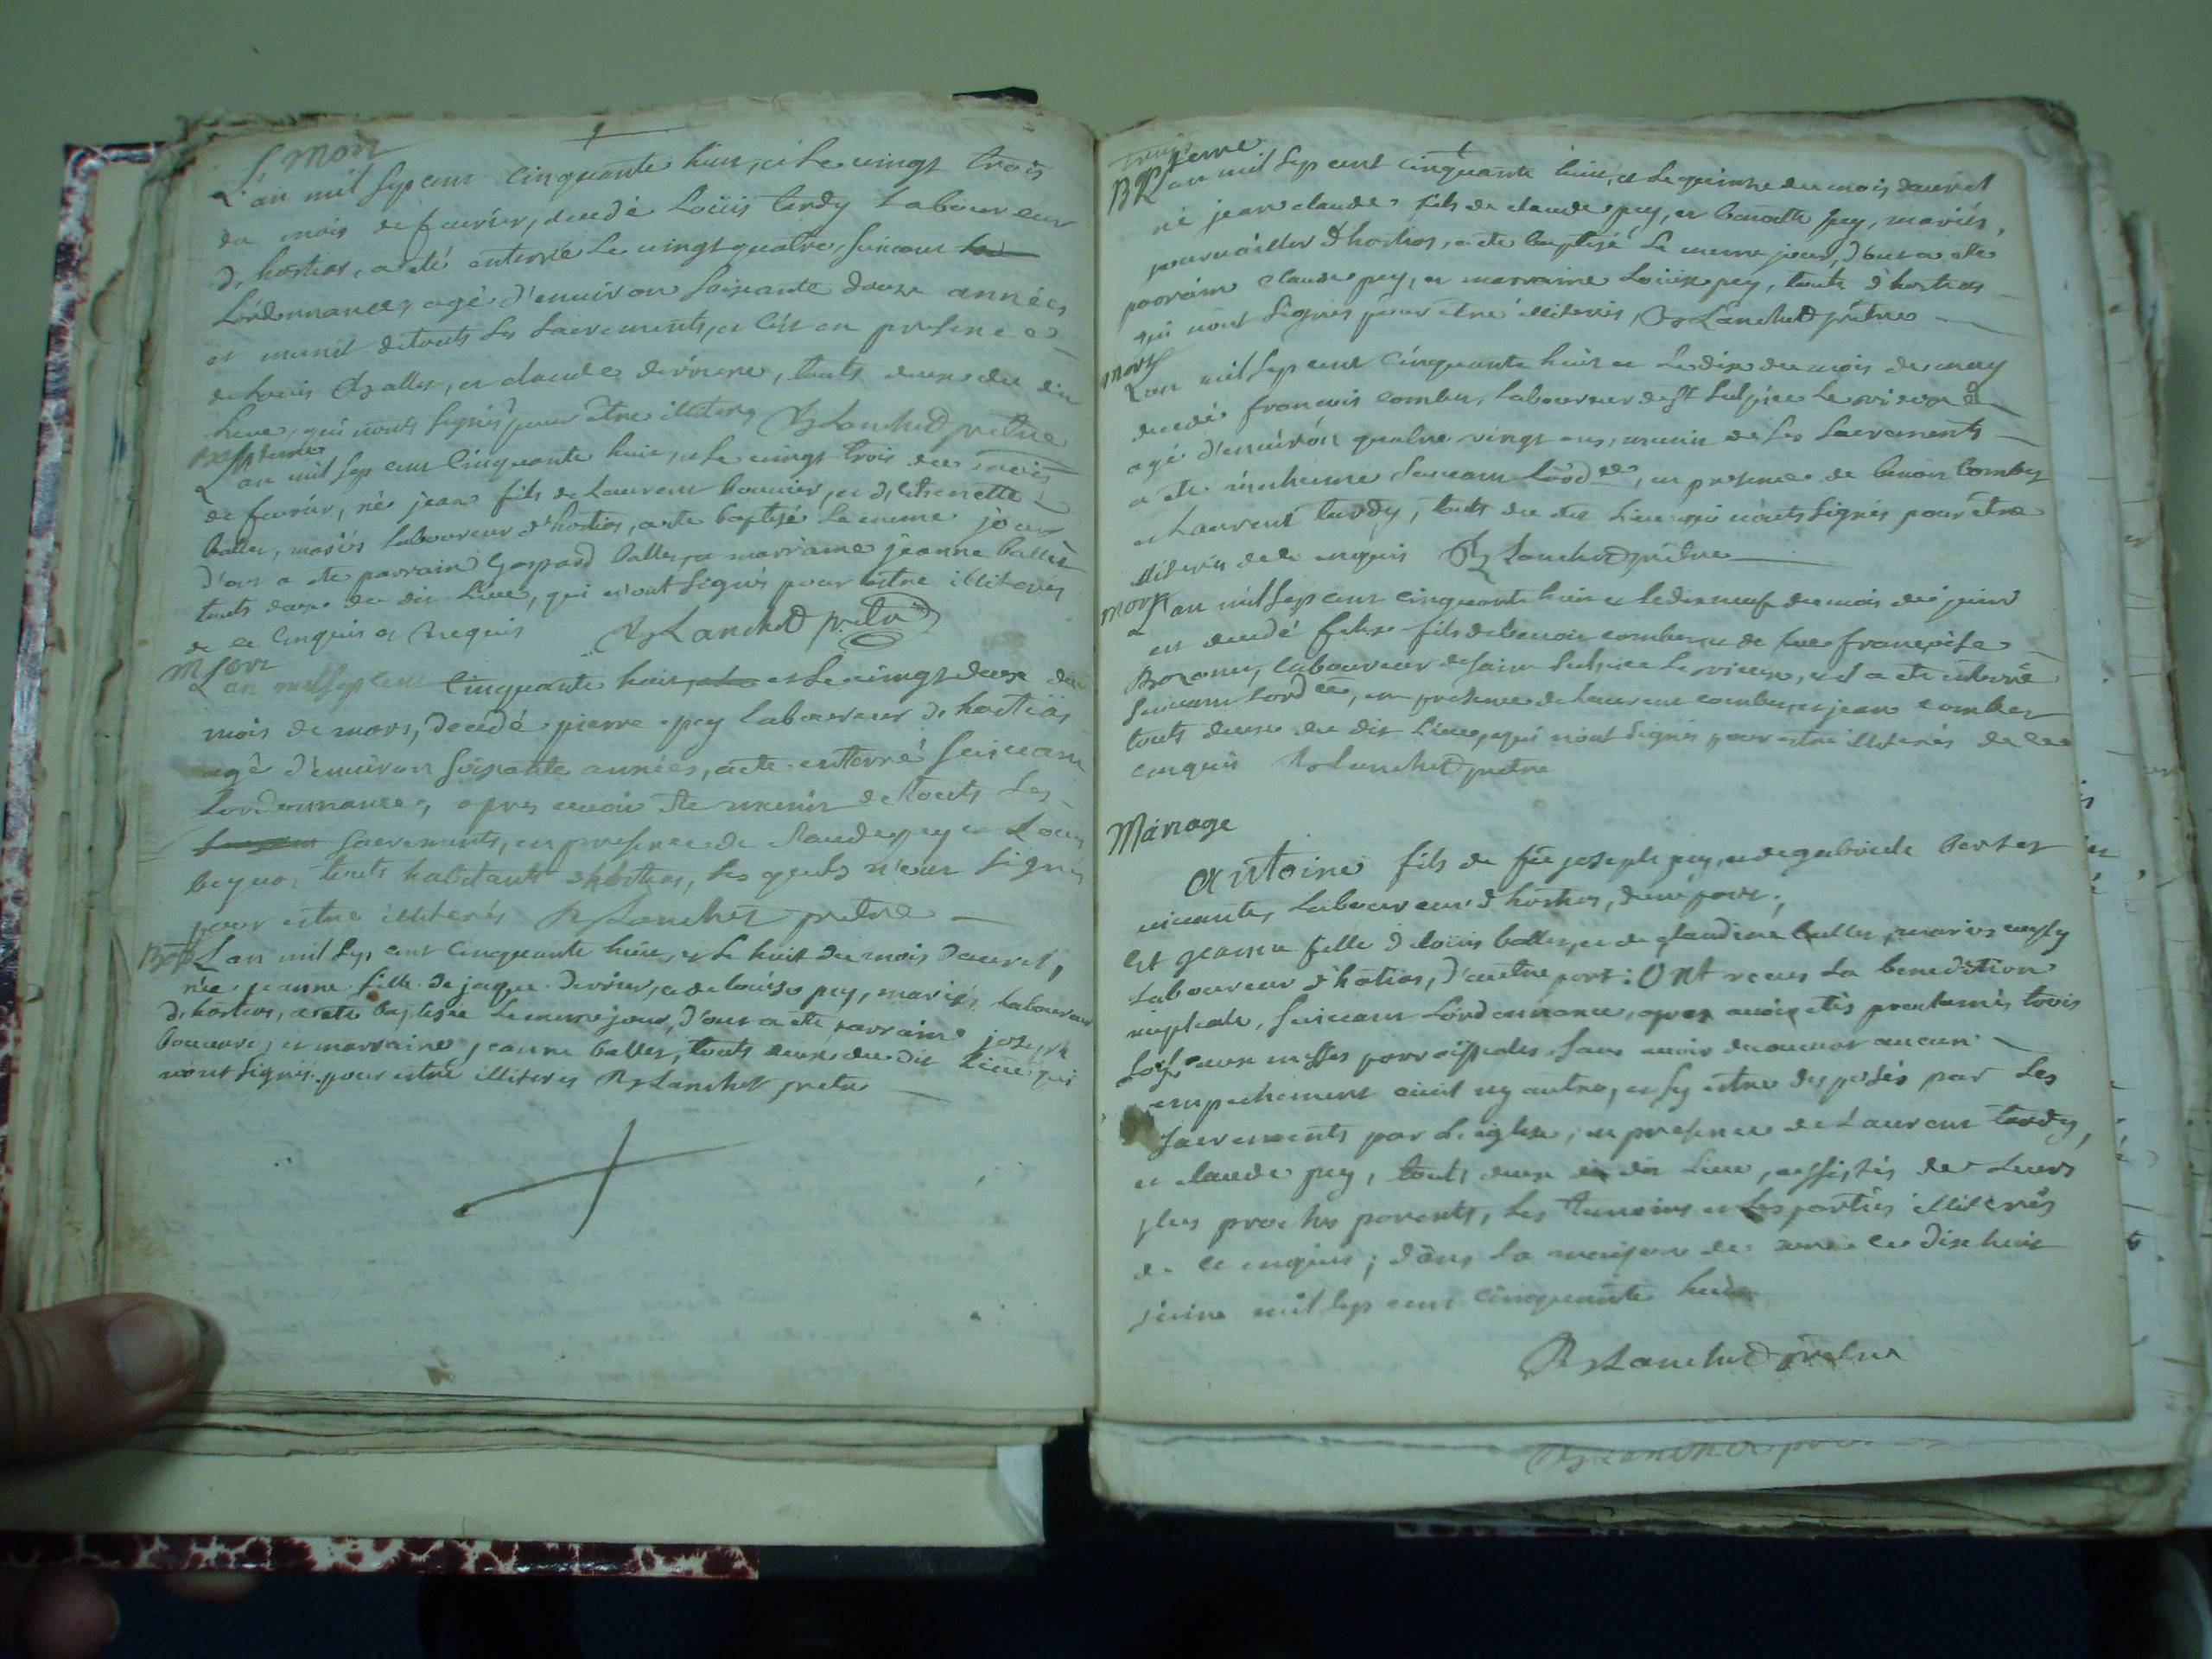 Mort
L'an mil sept cent cinquante huit, et le vingt trois
du mois de fevrier, decedé Loüis tardy Laboureur
d'hostias, a eté enterré le vingt quatre, suivant
L'ordonnance, agé d'environ soixante douze années
et munit de touts les sacrements, et c'est en presence
de Louis, et claude, touts deux du dit
Lieue, qui n'onts signés pour être illiteres Blanchet prêtre
Bapteme
L'an mil sept cent cinquante huit, et le vingt trois du mois
de fevrier, né jean fils de Laurent bouvier, et d'
ballet, mariés Laboureur d'hostias, a ete baptisé le meme jour
d'ont a ete parrain Gaspard ballet, et marraine jeanne ballet
touts deux du dit Lieue, qui n'ont signés pour estre illiterés
de ce enquis et requis Blanchet prêtre
Mort
L'an mil sept cent cinquante huit, et le vingt deux du
mois de mars, decedé pierre pey laboureur d'hostias
agé d'environ soixante années, a ete enterré suivant
L'ordonnance, apres avoir ete munit de touts les
sacrements, en presence de claude pey et Louis
touts habitants d'hostias, les quels n'ont signés
pour estre illiterés Blanchet prêtre
Bap L'an mil sept cent cinquante huit, et le huit du mois d'avril,
née jeanne fille de jaque, et de loüise pey, mariés Laboureur
d'hostias, a eté baptisée le meme jour, d'ont a eté parrain joseph
, et marraine jeanne ballet, touts deux du dit Lieue qui
n'ont signés pour estre illiteres Blanchet prêtre
Bapteme
L'an mil sept cent cinquante huit, et le quinze du mois d'avril
né jean claude fils de claude pey, et benoitte pey, mariés,
d'hostias, a ete baptisé le meme jour, d'ont a ete
parrain claude pey, et marraine Loüise pey, touts d'hostias
qui n'ont signés pour etre illiterés, Blanchet prêtre
Mort
L'an mil sept cent cinquante huit et le dix du mois de may
decedé francois combet, Laboureur de St Sulpice le vieux
agé d'environ quatre vingt ans, munit de ses sacrements
a ete inhumé suivant L'ord ce, en presence de benoit combet
et Laurent tardy, touts du dit Lieue qui n'onts signés pour etre
illiterés de ce enquis Blanchet prêtre
Mort
L'an mil sept cent cinquante huit et le dixneuf du mois de juin
est decedé fils de benoit combet et de françoise
, laboureur de saint Sulpice le vieux, et a ete enterré
suivant L'ord ce, en presence de Laurent combet et jean combet
touts deux du dit Lieue, qui n'ont signés pour etre illiterés de ce
enquis Blanchet prêtre
Mariage
Antoine fils de feu joseph pey, et de gabriele
vivante, Laboureur d'hostias, d'une part,
Et jeanne fille de loüis ballet, et de claudine ballet, mariés
Laboureur d'hostias, d'autre part: Ont receus la benediction
nuptiale, suivant L'ordonnance, apres avoir etés proclamés trois
fois aux messes parroissiales sans avoir decouvert aucun
empechement civil ny autre, et s'y estre disposés par les
sacrements par L'eglise, en presence de Laurent tardy,
et claude pey, touts deux du dit Lieue, assistés de Leurs
plus proches parents, les temoins et les parties illiterés
de ce enquis; dans la maison de ce dix huit
juin mil sept cent cinquante huit
Blanchet prêtre